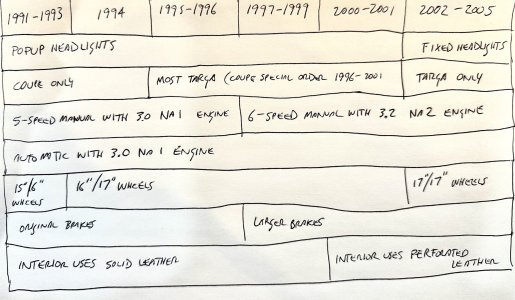 1991-1993 1994 1995-1996 1997-1999 2000-2001 2002-2005
POPUP HEADLIGHTS FIXED HEADLIGHTS
COUPE ONLY MOST TARGA (COUPE SPECIAL ORDER 1996-2001 TARGA ONLY
5-SPEED MANUAL WITH 3.0 NA1 ENGINE 6-SPEED MANUAL WITH 3.2 NA2 ENGINE
AUTOMATIC WITH 3.0 NA1 ENGINE
15"/16" 16"/17" WHEELS 17"/17" WHEELS
WHEELS
ORIGINAL BRAKES LARGER BRAKES
INTERIOR USES SOLID LEATHER INTERIOR USES PERFORATED
LEATHER